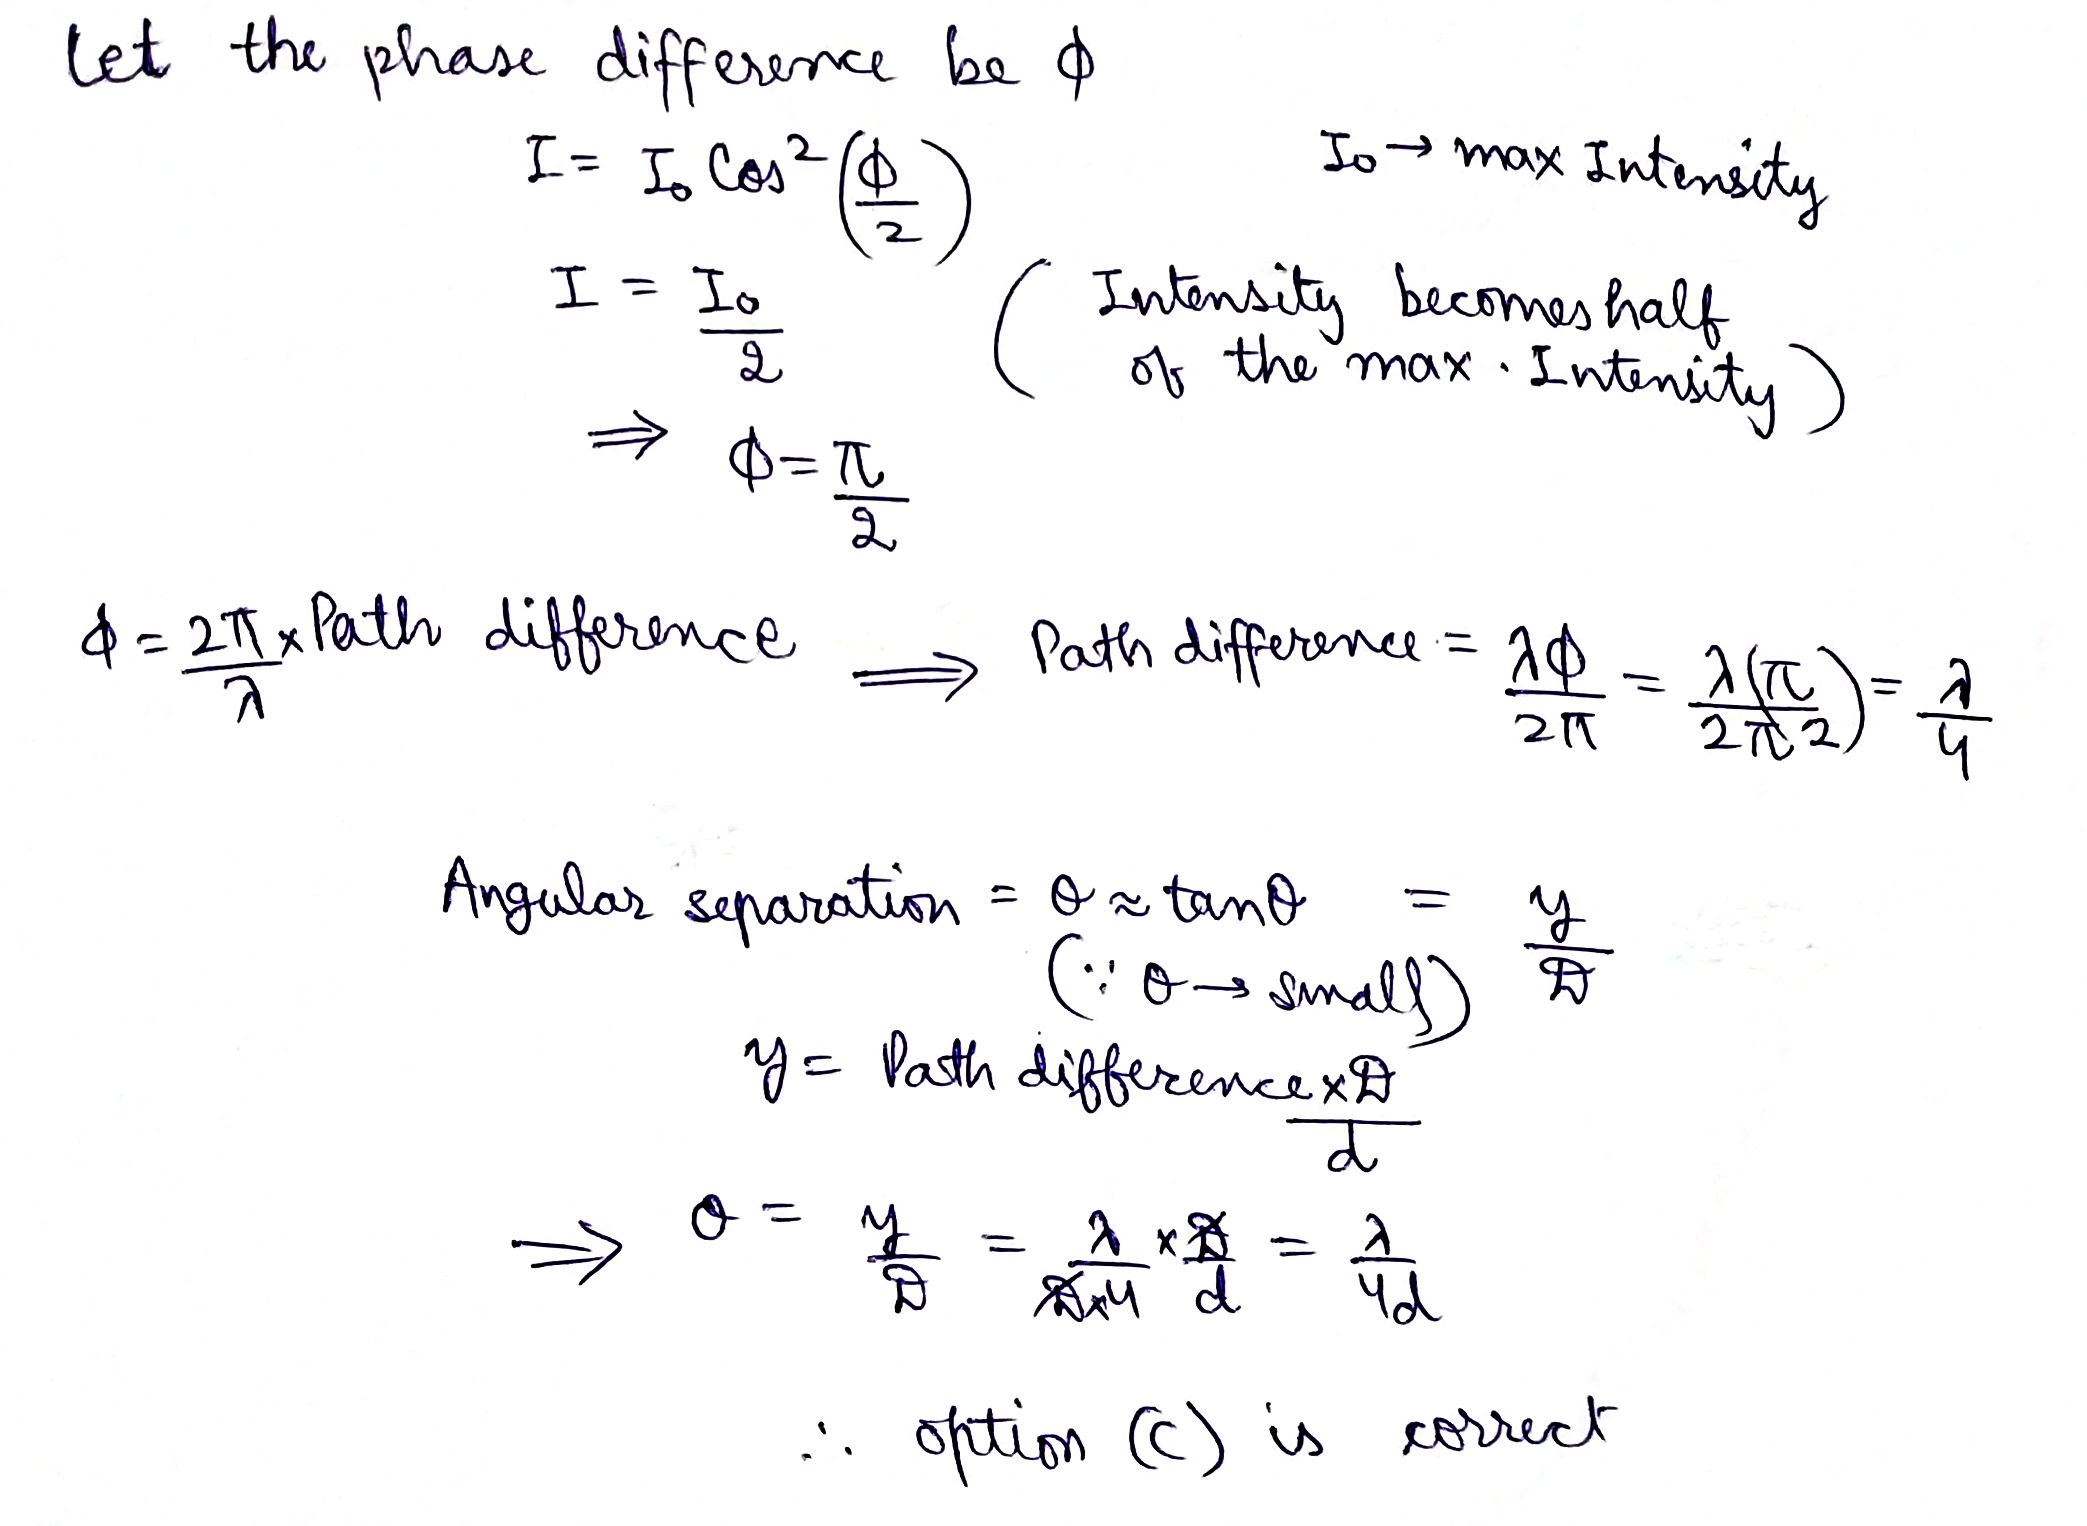 Let the phase difference be ϕ
I = I₀ Cos²(ϕ/2) I₀ → max Intensity
I = I₀/2 (Intensity becomes half
of the max. Intensity)
⇒ ϕ = π/2
ϕ = 2π/λ × Path difference ⇒ Path difference = λϕ/2π = λ/2π (π/2) = λ/4
Angular separation = θ ≈ tanθ = y/D
(∵ θ → small)
y = Path difference × D/d
⇒ θ = y/D = λ/D×4 × D/d = λ/4d
∴ option (C) is correct